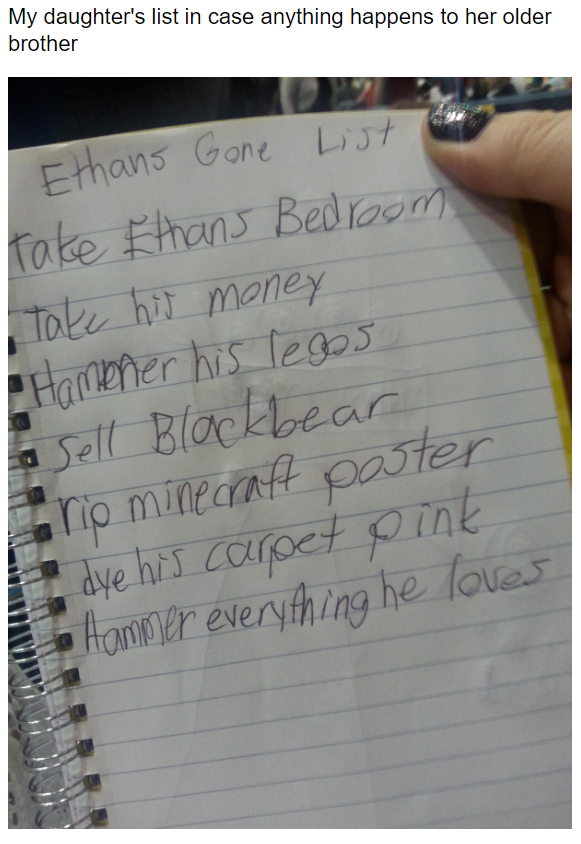 My daughter's list in case anything happens to her older
brother
Ethans Gone List
Take Ethans Bedroom
Take his money
Hammer his legos
Sell Blackbear
rip minecraft poster
dye his carpet pink
Hammer everything he loves